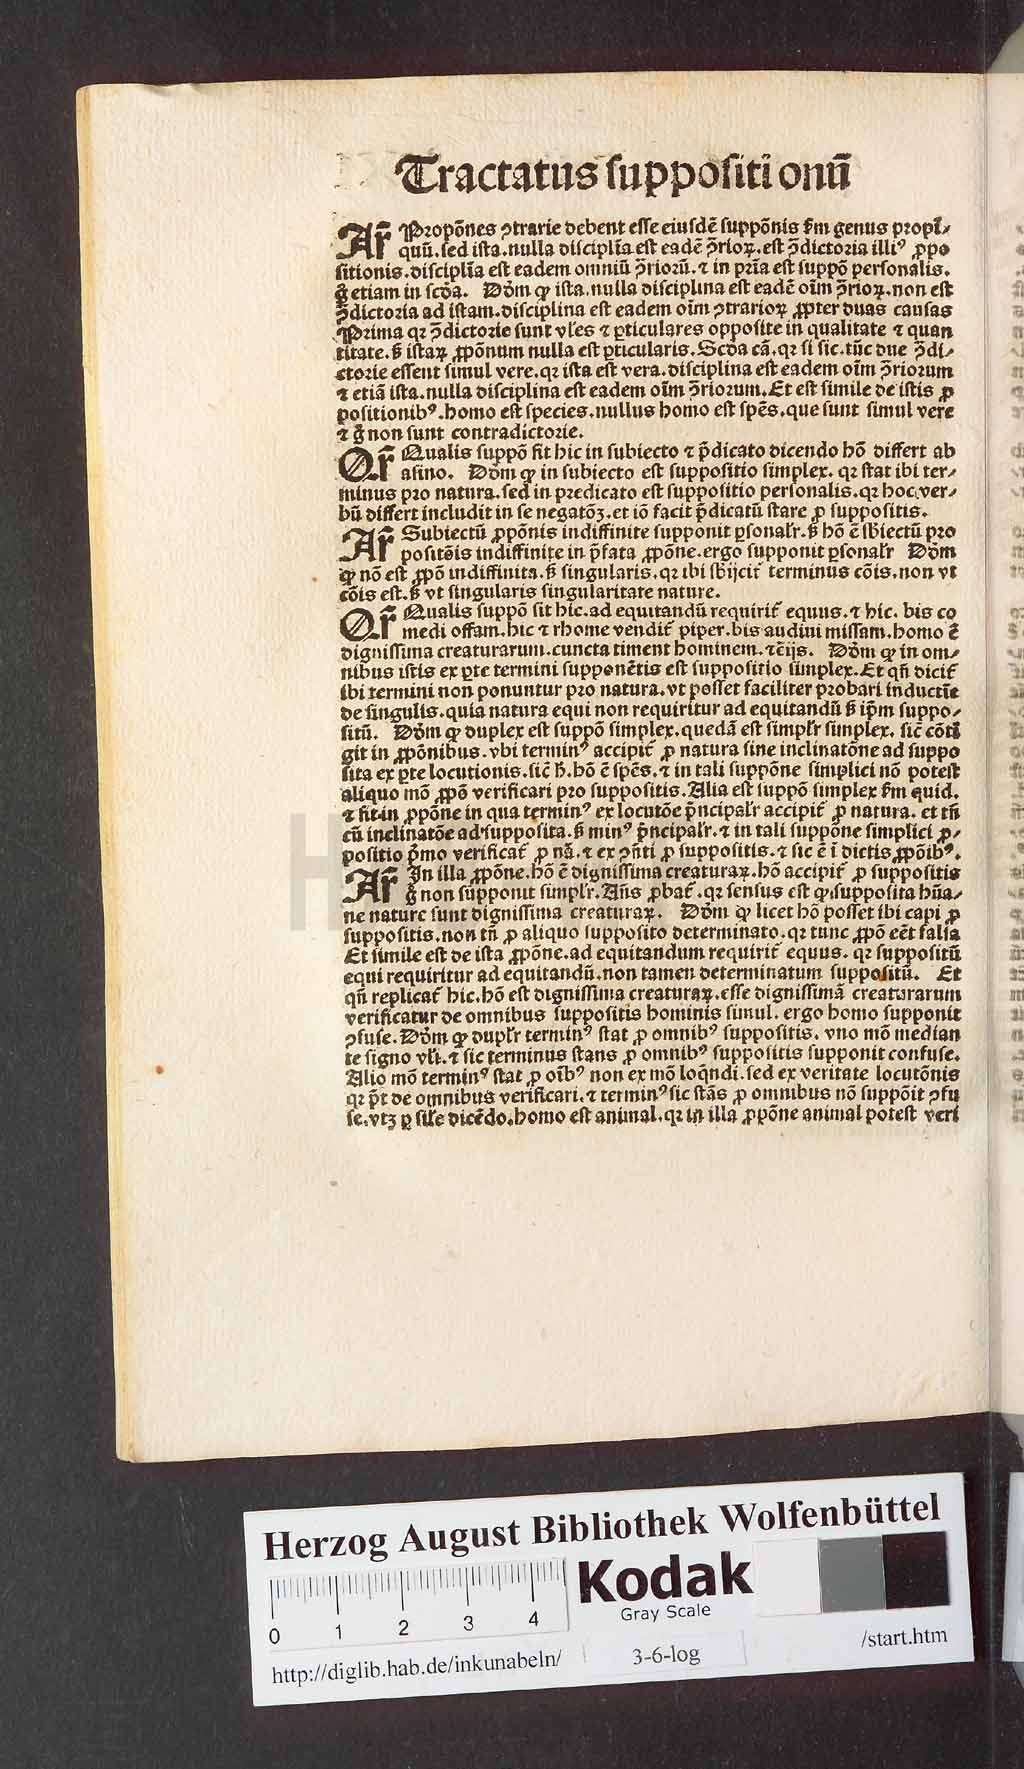 Tractatus suppositionū
Ar̄ Propōnes ꝯtrarie debent esse eiusdē suppōnis ẜm genus propī⸗
quū.sed ista.nulla disciplīa est eadē ꝯ̄rioꝝ.est ꝯ̄dictoria illiꝰ ꝓpo
sitionis.disciplīa est eadem omniū ꝯ̄rioru̅.⁊ in pri̅a est suppō personalis.
g̊ etiam in scd̄a. Dd̄m ꝙ ista.nulla disciplina est eadē oīm ꝯ̄rioꝝ.non est
ꝯ̄dictoria ad istam.disciplina est eadem oīm ꝯtrarioꝝ ꝓpter duas causas
Prima qꝛ ꝯ̄dictorie sunt vl̄es ⁊ ꝑticulares opposite in qualitate ⁊ quan
titate.ß istaꝝ ꝓpōnum nulla est ꝑticularis.Scd̄a cā.qꝛ si sic.tūc due ꝯ̄di⸗
ctorie essent simul vere.qꝛ ista est vera.disciplina est eadem oīm ꝯ̄riorum
⁊ etiā ista.nulla disciplina est eadem oīm ꝯ̄riorum.Et est simile de istis ꝓ
positionibꝰ.homo est species.nullus homo est spēs.que sunt simul vere
⁊ g̊ non sunt contradictorie.
Qr̄ Qualis suppō sit hic in subiecto ⁊ p̄dicato dicendo hō differt ab
asino. Dd̄m ꝙ in subiecto est suppositio simplex. qꝛ stat ibi ter⸗
minus pro natura.sed in predicato est suppositio personalis.qꝛ hoc ver⸗
bū differt includit in se negatōꝫ.et iō facit p̄dicatū stare ꝓ suppositis.
Ar̄ Subiectū ꝓpōnis indiffinite supponit ꝑsonalr̄.ß hō ē sb̄iectū pro
positōis indiffinite in p̄fata ꝓpōne.ergo supponit ꝑsonalr̄ Dd̄m
ꝙ nō est ꝓpō indiffinita.ß singularis.qꝛ ibi sb̄ijcit̄ terminus cōis.non vt
cōis est.ß vt singularis singularitate nature.
Qr̄ Qualis suppō sit hic.ad equitandū requirit̄ equus.⁊ hic. bis co
medi offam.hic ⁊ rhome vendit̄ piper.bis audiui missam.homo ē
dignissima creaturarum.cuncta timent hominem.⁊c̄ijs. Dd̄m ꝙ in om⸗
nibus istis ex ꝑte termini supponētis est suppositio simplex.Et qn̄ dicit̄
ibi termini non ponuntur pro natura.vt posset faciliter probari inductīe
de singulis.quia natura equi non requiritur ad equitandū ß ip̄m suppo⸗
sitū. Dd̄m ꝙ duplex est suppō simplex.quedā est simplr̄ simplex. sic̄ cōtī
git in ꝓpōnibus.vbi terminꝰ accipit̄ ꝓ natura sine inclinatōne ad suppo
sita ex ꝑte locutionis.sic̄ h̄.hō ē spēs.⁊ in tali suppōne simplici nō potest
aliquo mō ꝓpō verificari pro suppositis.Alia est suppō simplex ẜm quid.
⁊ fit in ꝓpōne in qua terminꝰ ex locutōe p̄ncipalr̄ accipit̄ ꝓ natura. et tn̄
cū inclinatōe ad supposita.ß minꝰ p̄ncipalr̄.⁊ in tali suppōne simplici ꝓ⸗
positio p̄mo verificat̄ ꝓ nā.⁊ ex ꝯn̄ti ꝓ suppositis.⁊ sic ē ī dictis ꝓpōibꝰ.
Ar̄ In illa ꝓpōne.hō ē dignissima creaturaꝝ.hō accipit̄ ꝓ suppositis
g̊ non supponit simplr̄.Añs ꝓbat̄.qꝛ sensus est ꝙ supposita hūa⸗
ne nature sunt dignissima creaturaꝝ. Dd̄m ꝙ licet hō posset ibi capi ꝓ
suppositis.non tn̄ ꝓ aliquo supposito determinato.qꝛ tunc ꝓpō eēt falsa
Et simile est de ista ꝓpōne.ad equitandum requirit̄ equus. qꝛ suppositū
equi requiritur ad equitandū.non tamen determinatum suppositū. Et
qn̄ replicat̄ hic.hō est dignissima creaturaꝝ.esse dignissimā creaturarum
verificatur de omnibus suppositis hominis simul. ergo homo supponit
ꝯfuse.Dd̄m ꝙ duplr̄ terminꝰ stat ꝓ omnibꝰ suppositis. vno mō median
te signo vl̄i.⁊ sic terminus stans ꝓ omnibꝰ suppositis supponit confuse.
Alio mō terminꝰ stat ꝓ oībꝰ non ex mō loq̄ndi.sed ex veritate locutōnis
qꝛ pōt de omnibus verificari.⁊ terminꝰ sic stās ꝓ omnibus nō suppōit ꝯfu
se.vtꝫ ꝑ sil̄e dicēdo.homo est animal.qꝛ in illa ꝓpōne animal potest veri
Herzog August Bibliothek Wolfenbüttel
Kodak
Gray Scale
0 1 2 3 4
http://diglib.hab.de/inkunabeln/ 3-6-log /start.htm